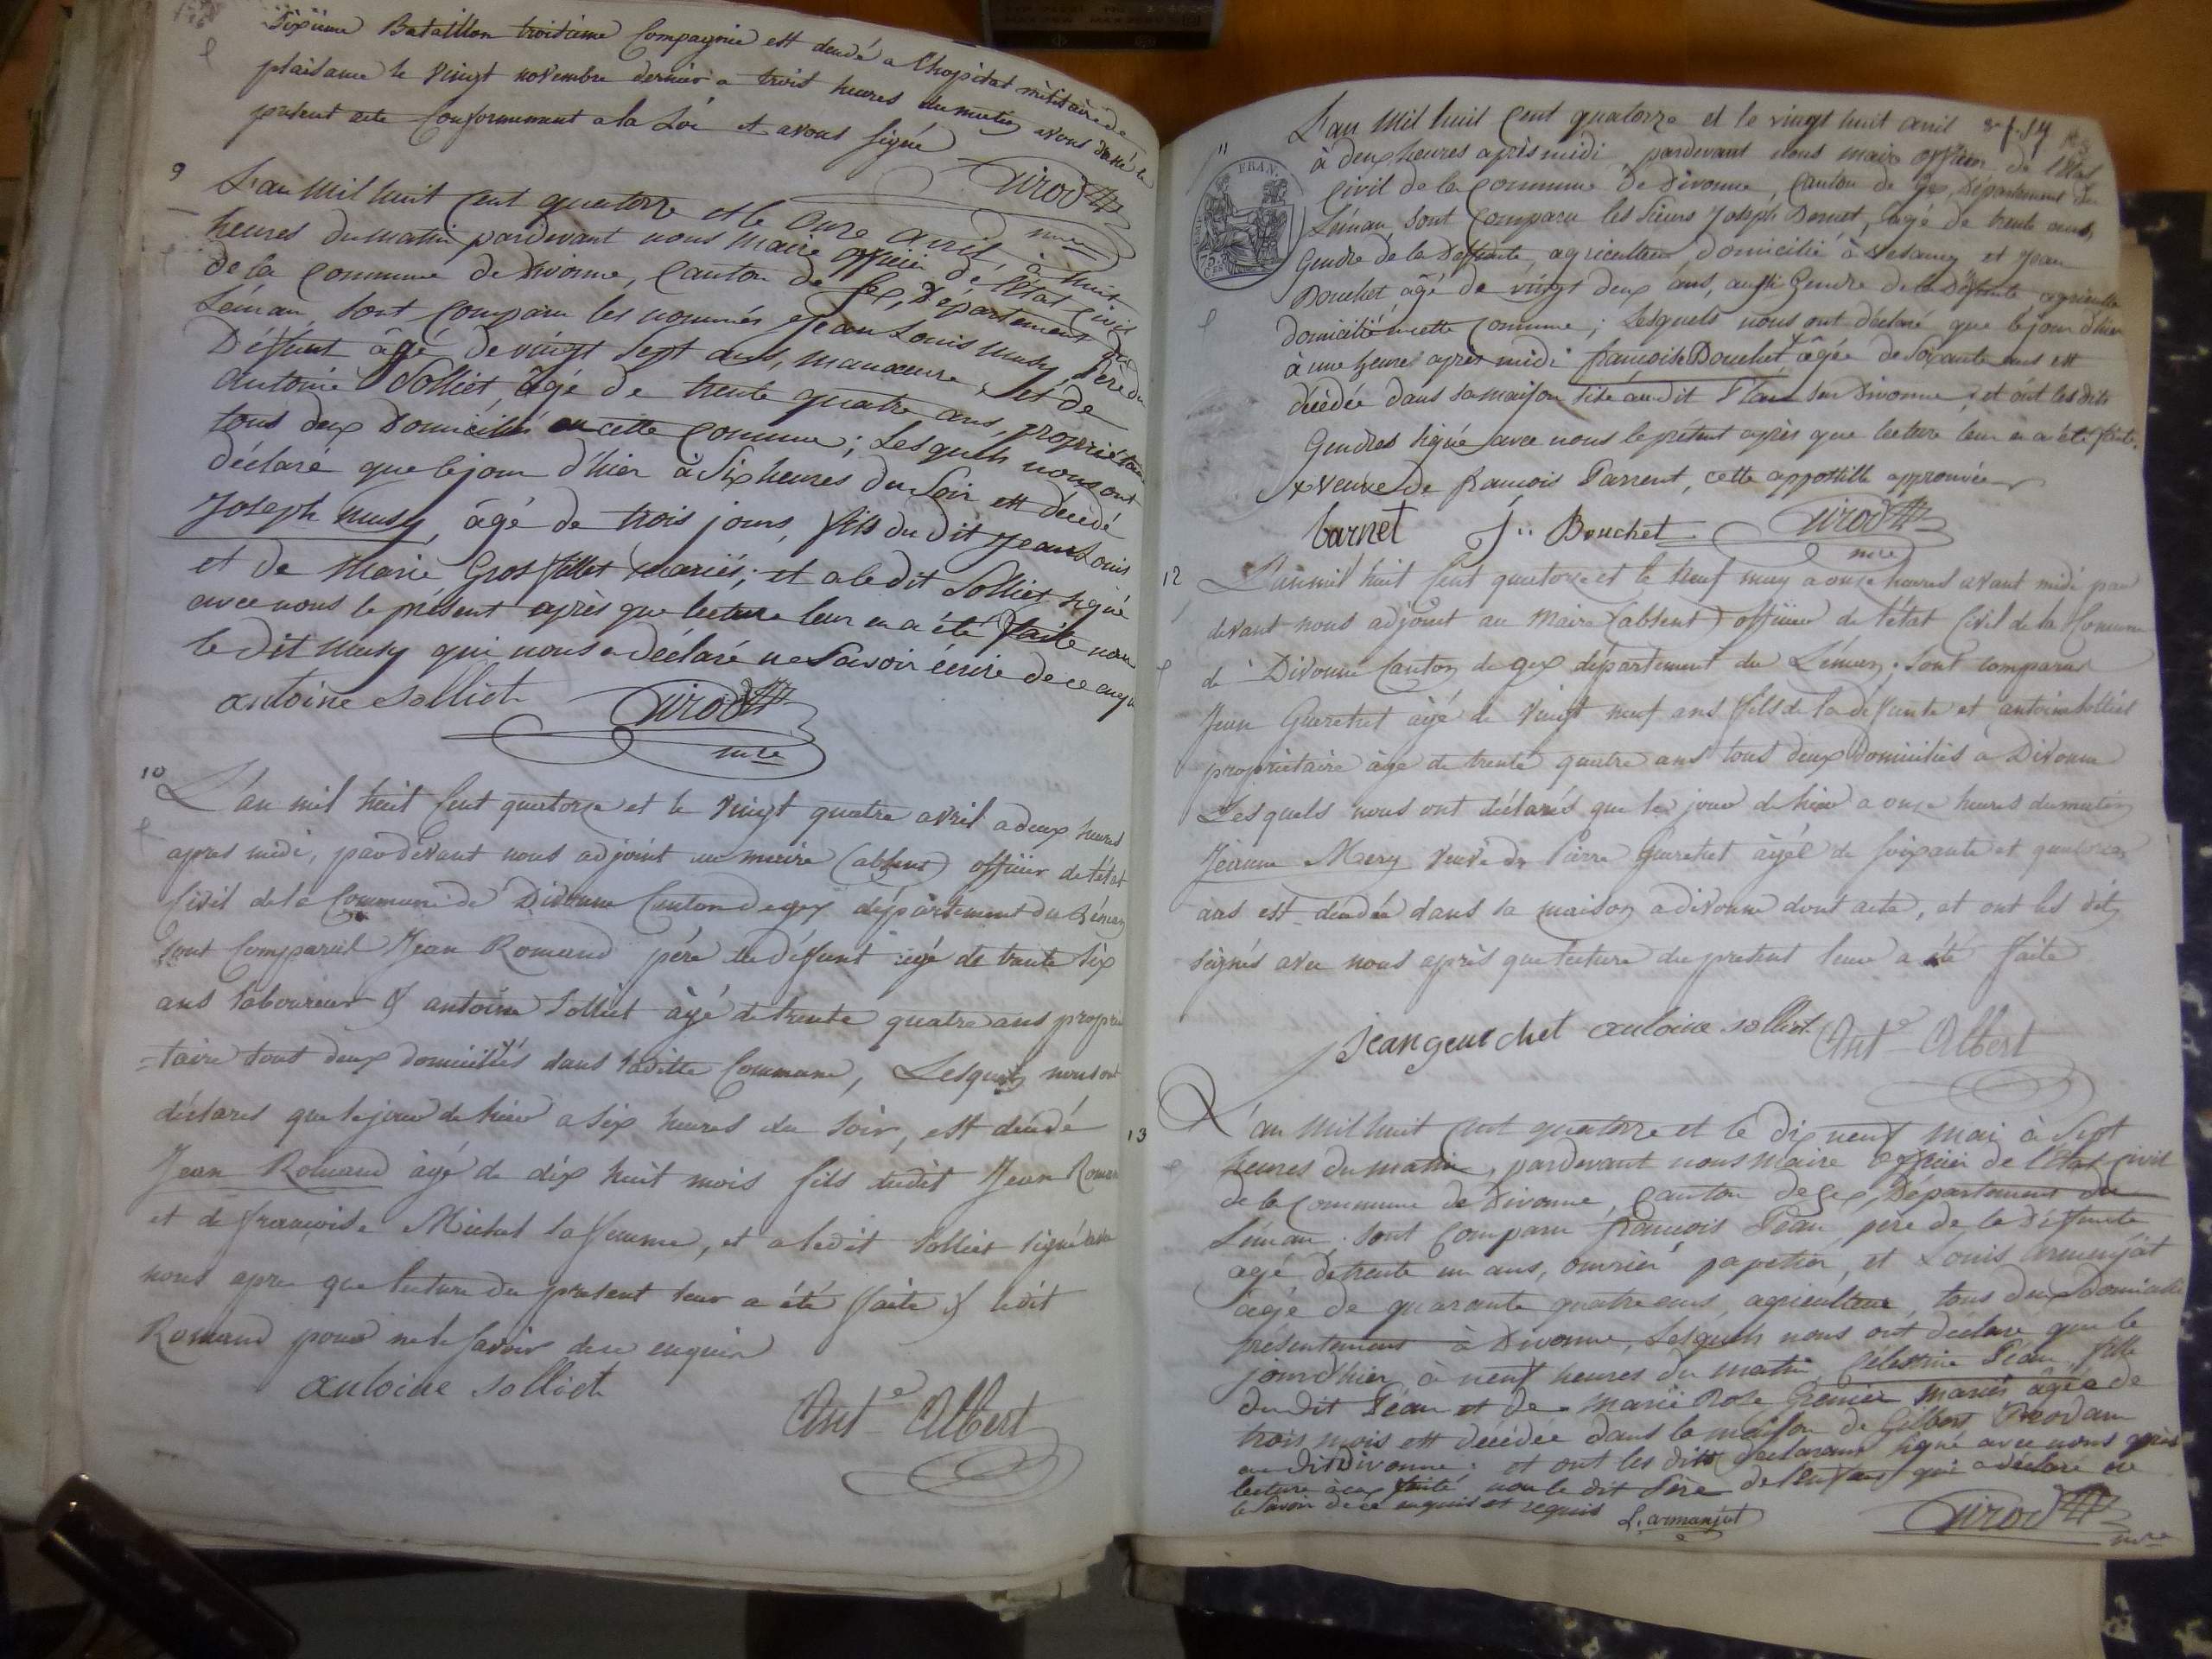 Sixieme Bataillon troisieme Compagnie est decedé a l'hopital militaire de
plaisance le vingt novembre dernier a trois heures du matin avons donné le
present acte Conformement a la Loi et avons signé
Girod
mre
9
L'an Mil huit Cent quatorze et le onze avril, à huit
heures du matin pardevant nous Maire officier de l'Etat Civil
de la Commune de Divonne, Canton de Gex, Département du
Léman, Sont Comparu les nommés Jean Louis Musy Père du
Défunt âgé de vingt sept ans, manœuvre, et de
Antoine Solliet, âgé de trente quatre ans, propriétaire
tous deux Domicilié en cette Commune; Lesquels nous ont
déclaré que le jour d'hier à Six heures du Soir est décédé
Joseph Musy, âgé de trois jours, fils du dit Jean Louis
et de Marie Grosfillet mariés; et a le dit Solliet signé
avec nous le présent après que lecture leur en a été faite non
le dit Musy qui nous a Déclaré ne Savoir écrire de ce enquis
antoine solliet
Girod
mre
10
L'an mil huit Cent quatorze et le vingt quatre avril a deux heures
apres midi, pardevant nous adjoint au maire (absent) officier de l'état
Civil de la Commune de Divonne Canton de gex département du Léman
sont Comparus Jean Romand père du défunt agé de trente six
ans laboureur & antoine Solliet àgé de trente quatre ans proprié
=taire tout deux domicilliés dans ladite Commune, Lesquels nous ont
déclarés que le jour de hier a six heures du soir, est décédé
Jean Romand àgé de dix huit mois fils dudit Jean Romand
et de françoise Michel sa femme, et a ledit Solliet signé avec
nous apre que lecture du present leur a été faite & ledit
Romand pour ne le savoir de ce enquis
antoine solliet
Ant.e Albert
11
L'an Mil huit Cent quatorze et le vingt huit avril
à deux heures après midi, pardevant nous maire officier de l'Etat
Civil de la Commune de Divonne Canton de Gex, Département du
Léman, Sont Comparu les Sieurs Joseph Bornet, âgé de trente ans,
Gendre de la Deffunte, agriculteur, domicilié à Vesancy et Jean
Bouchet âgé de vingt deux ans, aussi Gendre de la Défunte agriculteur
domicilié en cette Commune; Lesquels nous ont déclaré que le jour d'hier
à une heures après midi françoise Bouchet x âgée de Soixante ans est
décédée dans sa maison sise au dit Plan sur Divonne, et ont les dits
Gendres signé avec nous le présent après que lecture leur en a été faite.
x veuve de francois Parrent, cette appostille approuvée
FRAN.
75.
CES
barnet
J. Bouchet
Girod
mre
12
L'an mil huit Cent quatorze et le neuf may a onze heures avant midi par
devant nous adjoint au Maire (absent) officier de l'état Civil de la Commune
de Divonne Canton de gex département du Léman; Sont comparus
Jean Guerchet àgé de vingt neuf ans fils de la défunte et antoine Solliet
proprietaire àgé de trente quatre ans tous deux domiciliés à Divonne
Lesquels nous ont déclarés que le jour de hier a onze heures du matin
Jeanne Mery veuve de Pierre guerchet àgée de soixante et quatorze
ans est décédée dans sa maison a divonne dont acte, et ont les dits
signés avec nous après que lecture du present leur a été faite
jean guerchet
antoine solliet
Ant.e Albert
13
L'an Mil huit Cent quatorze et le Dix neuf Mai à Sept
heures du matin, pardevant nous Maire officier de l'Etat Civil
de la Commune de Divonne, Canton de Gex, Département du
Léman. Sont Comparu francois Péan, père de la Défunte
agé de trente un ans, ouvrier papetier, et Louis Armanjat
âgé de quarante quatre ans, agriculteur, tous deux Domicilié
présentement à Divonne, Lesquels nous ont déclaré que le
jour d'hier, à neuf heures du matin Célestine Péan, fille
du dit Péan et de Marie Rose Grenier mariés âgée de
trois mois est décédée dans la maison de Gilbert
au dit Divonne: et ont les dits Déclarants signé avec nous après
lecture à eux faite non le dit Père de l'enfant qui a déclaré ne
le Savoir de ce enquis et requis
L. armanjat
Girod
mre